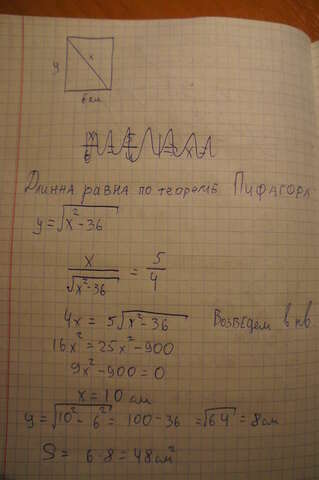 y
x
6 см
Длинна равна по теореме Пифагора
y = √(x² - 36)
x / √(x² - 36) = 5 / 4
4x = 5√(x² - 36) Возведем в кв
16x² = 25x² - 900
9x² - 900 = 0
x = 10 см
y = √(10² - 6²) = 100 - 36 = √64 = 8 см
S = 6 · 8 = 48 см²